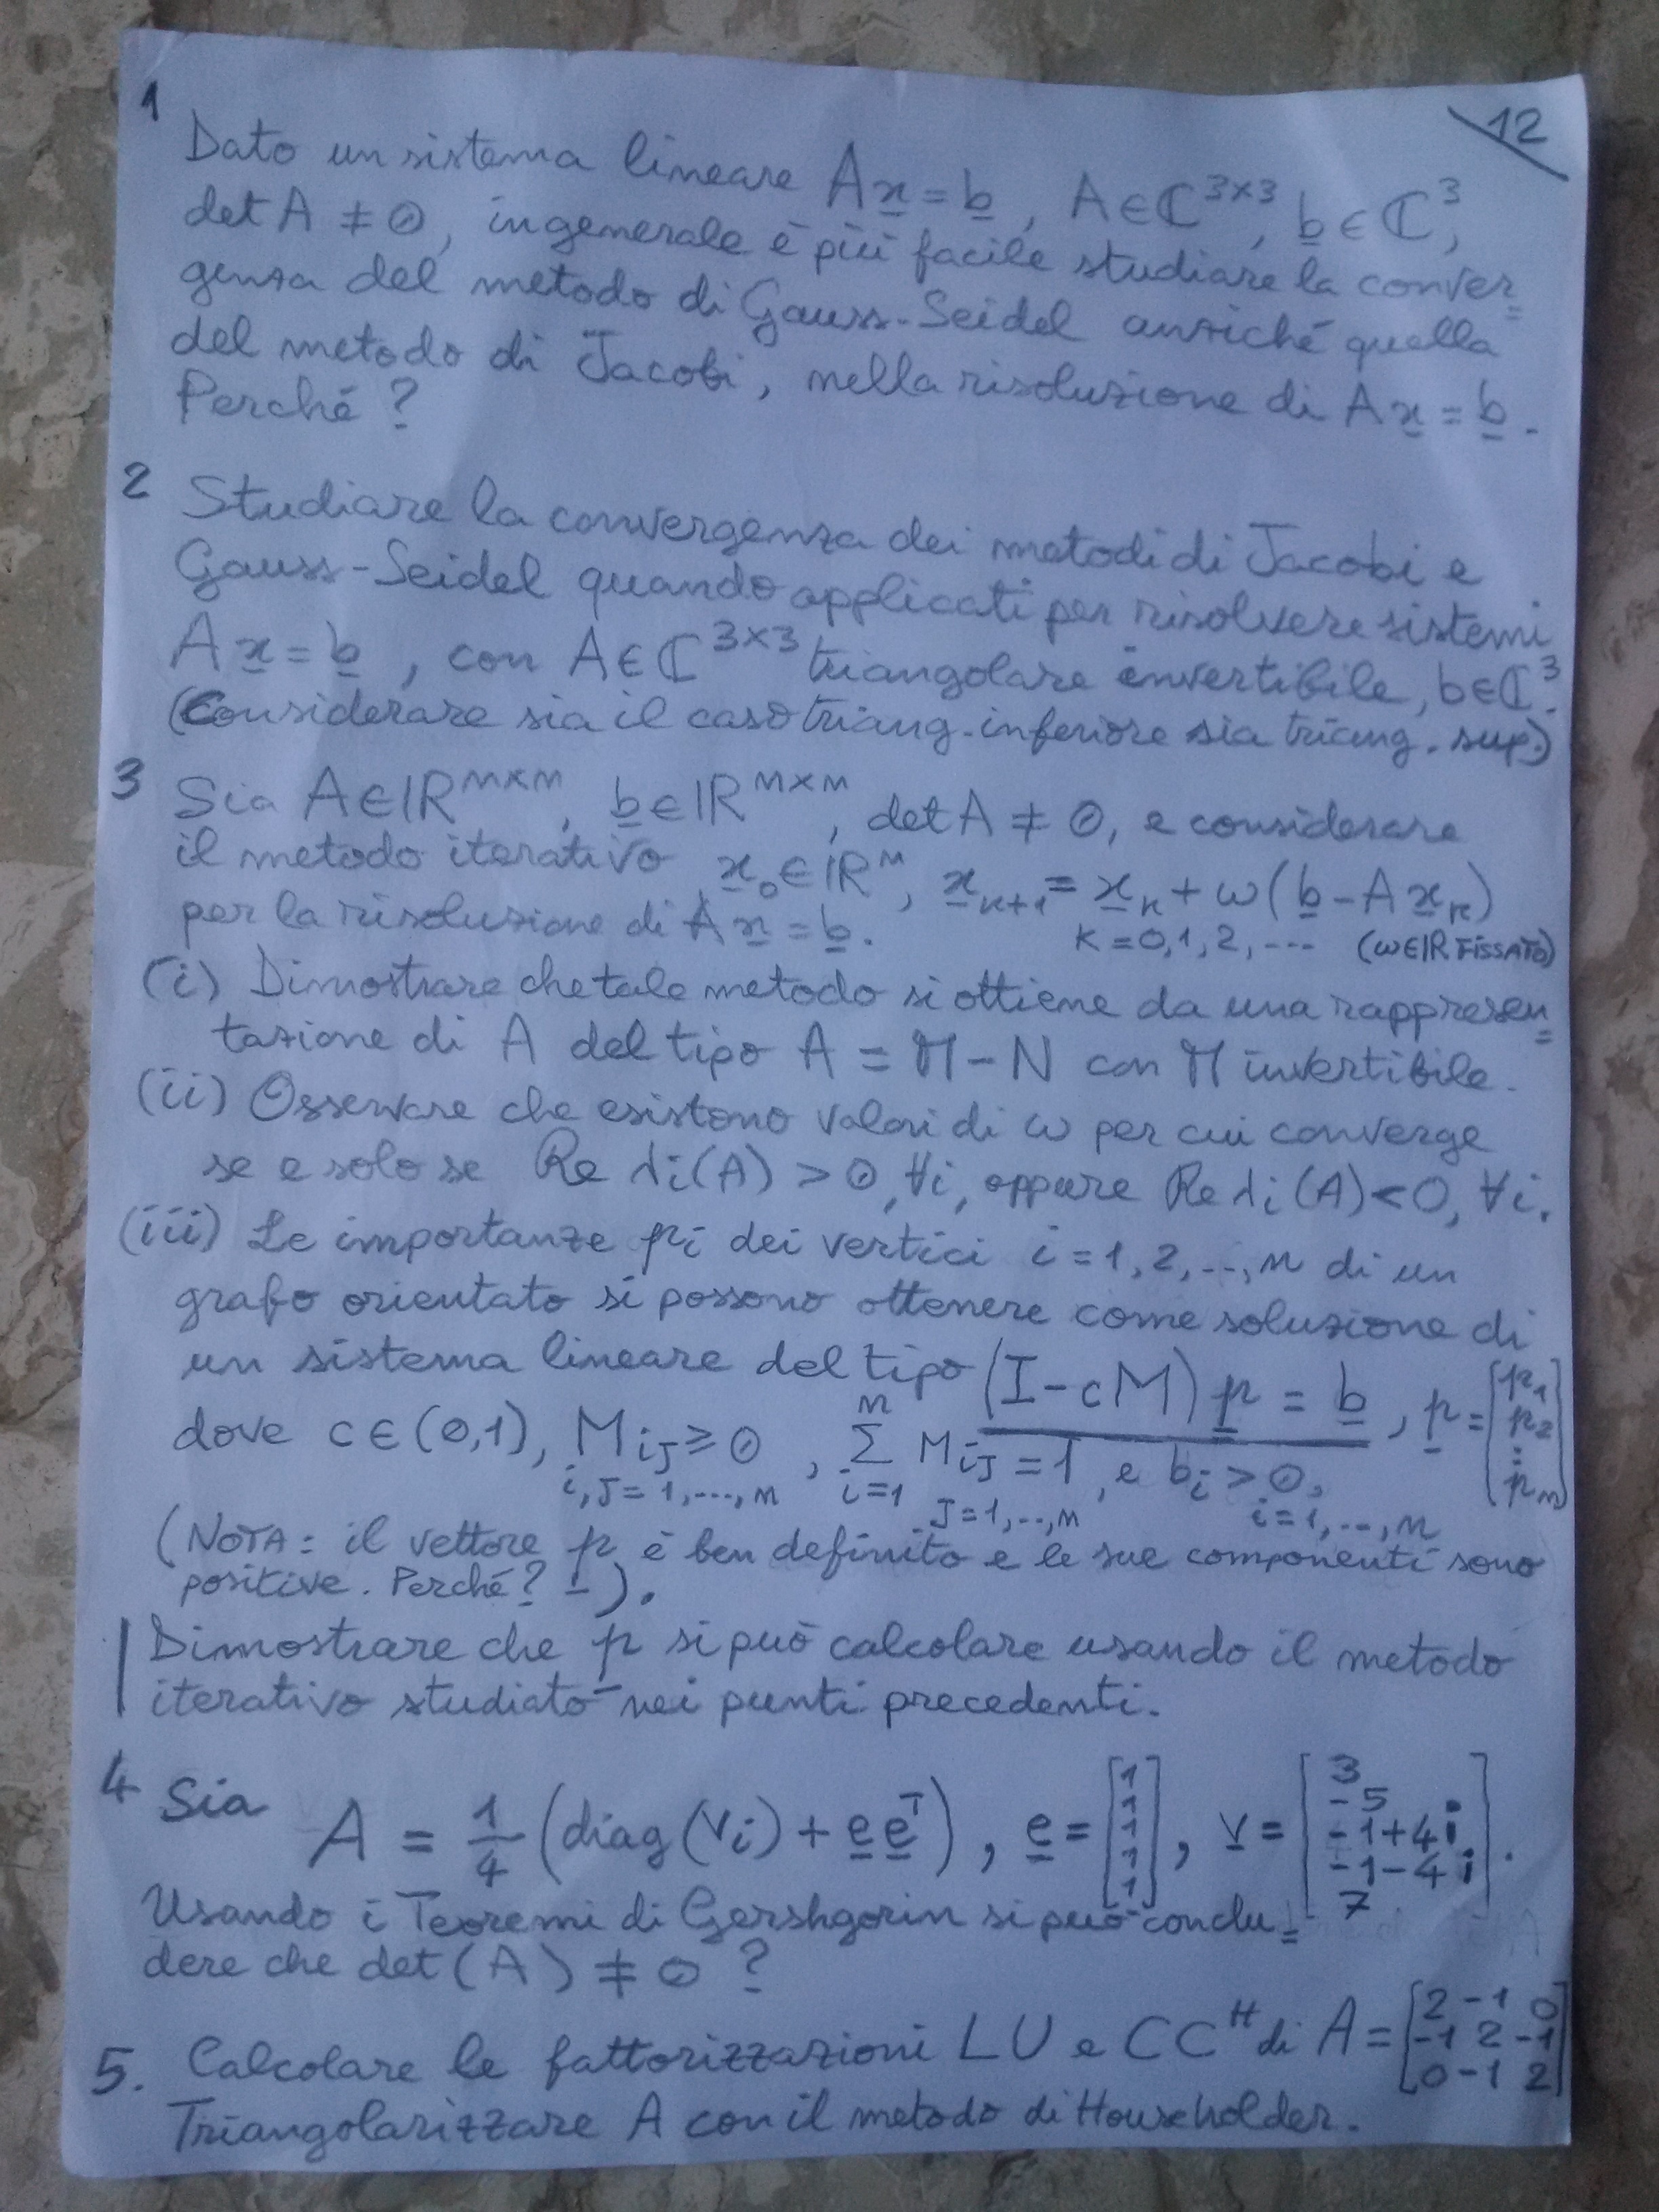 12
1 Dato un sistema lineare Ax = b, A∈ℂ^3×3, b∈ℂ^3,
det A ≠ 0, in generale è più facile studiare la conver=
genza del metodo di Gauss-Seidel anziché quella
del metodo di Jacobi, nella risoluzione di Ax = b.
Perché?
2 Studiare la convergenza dei metodi di Jacobi e
Gauss-Seidel quando applicati per risolvere sistemi
Ax = b, con A∈ℂ^3×3 triangolare invertibile, b∈ℂ^3.
(Considerare sia il caso triang. inferiore sia triang. sup.)
3 Sia A∈ℝ^n×n, b∈ℝ^n×n, det A ≠ 0, e considerare
il metodo iterativo x_0∈ℝ^n, x_k+1 = x_k + ω(b - Ax_k)
per la risoluzione di Ax = b. k = 0,1,2,... (ω∈ℝ FISSATO)
(i) Dimostrare che tale metodo si ottiene da una rappresen=
tazione di A del tipo A = M - N con M invertibile.
(ii) Osservare che esistono valori di ω per cui converge
se e solo se Re λi(A) > 0, ∀i, oppure Re λi(A) < 0, ∀i.
(iii) Le importanze pi dei vertici i = 1,2,...,n di un
grafo orientato si possono ottenere come soluzione di
un sistema lineare del tipo (I - cM) p = b, p = [p1 p2 ⋮ pn]
dove c∈(0,1), Mij ≥ 0 i,j=1,...,n, ∑ i=1 n Mij = 1 j=1,...,n, e bi > 0, i=1,...,n
(NOTA: il vettore p è ben definito e le sue componenti sono
positive. Perché?).
Dimostrare che p si può calcolare usando il metodo
iterativo studiato nei punti precedenti.
4 Sia A = 1/4 (diag(vi) + e e^T), e = [1 1 1 1 1], v = [3 -5 -1+4i -1-4i 7].
Usando i Teoremi di Gershgorin si può conclu=
dere che det(A) ≠ 0?
5. Calcolare le fattorizzazioni LU e CC^H di A = [2 -1 0 -1 2 -1 0 -1 2]
Triangolarizzare A con il metodo di Householder.